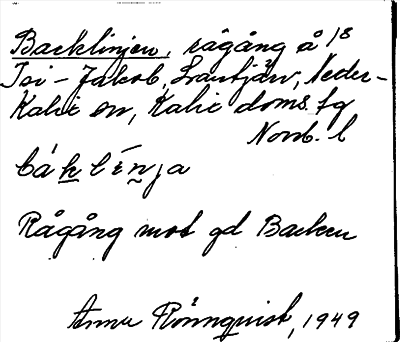 Backlinjen, rågång å 1/8
Isi-Jakob, Lantjärv, Neder-
Kalix sn, Kalix doms. tg
Norrb. l
båklínja
Rågång mot gd Backen
Anna Rönnquist, 1949